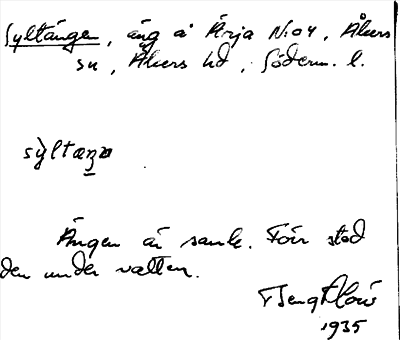 Syltängen, äng å Ärja N:o 4, Åkers
sn, Åkers hd, Söderm. l.
sỳltæŋa
Ängen är sank. Förr stod
den under vatten.
1935